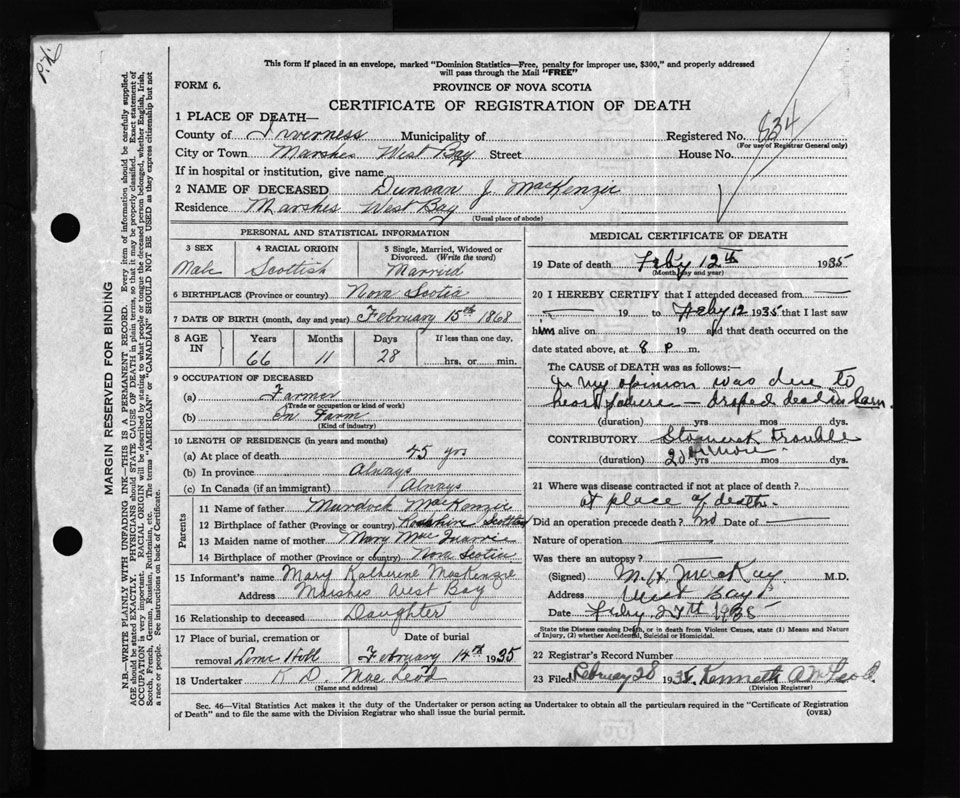 This form if placed in an envelope, marked "Dominion Statistics—Free, penalty for improper use, $300," and properly addressed
will pass through the Mail "FREE"
FORM 6.
PROVINCE OF NOVA SCOTIA
CERTIFICATE OF REGISTRATION OF DEATH
1 PLACE OF DEATH—
County of Inverness Municipality of
Registered No. 834
(For use of Registrar General only)
City or Town Marshes West Bay Street House No.
If in hospital or institution, give name
2 NAME OF DECEASED Duncan J. MacKenzie
Residence Marshes West Bay
(Usual place of abode)
PERSONAL AND STATISTICAL INFORMATION
3 SEX
Male
4 RACIAL ORIGIN
Scottish
5 Single, Married, Widowed or
Divorced. (Write the word)
Married
6 BIRTHPLACE (Province or country) Nova Scotia
7 DATE OF BIRTH (month, day and year) February 15th 1868
8 AGE
IN
Years
66
Months
11
Days
28
If less than one day,
hrs. or min.
9 OCCUPATION OF DECEASED
(a) Farmer
(Trade or occupation or kind of work)
(b) on Farm
(Kind of industry)
10 LENGTH OF RESIDENCE (in years and months)
(a) At place of death 45 yrs
(b) In province Always
(c) In Canada (if an immigrant) Always
Parents
11 Name of father Murdock MacKenzie
12 Birthplace of father (Province or country) Scotland
13 Maiden name of mother Mary Mac
14 Birthplace of mother (Province or country) Nova Scotia
15 Informant's name Mary Katherine MacKenzie
Address Marshes West Bay
16 Relationship to deceased Daughter
17 Place of burial, cremation or
removal
Date of burial
February 14th 1935
18 Undertaker K. D. MacLeod
(Name and address)
MEDICAL CERTIFICATE OF DEATH
19 Date of death Feby 12th 1935
(Month, day and year)
20 I HEREBY CERTIFY that I attended deceased from
19 to Feby 12 1935 that I last saw
him alive on 19 and that death occurred on
date stated above, at 8 P. m.
The CAUSE of DEATH was as follows:—
In my opinion was due to
heart failure — droped dead in barn.
(duration) yrs mos dys.
CONTRIBUTORY trouble
(duration) 20 yrs more mos dys.
21 Where was disease contracted if not at place of death?
at place of death.
Did an operation precede death? no Date of
Nature of operation
Was there an autopsy?
(Signed) MacKay M.D.
Address West Bay
Date Feby 27th 1935
State the Disease causing Death, or in death from Violent Causes, state (1) Means and Nature
of Injury, (2) whether Accidental, Suicidal or Homicidal.
22 Registrar's Record Number
23 Filed February 28 1935. Kenneth
(Division Registrar)
Sec. 46—Vital Statistics Act makes it the duty of the Undertaker or person acting as Undertaker to obtain all the particulars required in the "Certificate of Registration
of Death" and to file the same with the Division Registrar who shall issue the burial permit.
(OVER)
MARGIN RESERVED FOR BINDING
N.B.—WRITE PLAINLY WITH UNFADING INK—THIS IS A PERMANENT RECORD. Every item of information should be carefully supplied.
AGE should be stated EXACTLY. PHYSICIANS should STATE CAUSE OF DEATH in plain terms, so that it may be properly classified. Exact statement of
OCCUPATION is very important. RACIAL ORIGIN will be described by stating to what people or tongue the deceased person belonged, whether English, Irish,
Scotch, French, German, Russian, Ruthenian, etc. The terms "AMERICAN" or "CANADIAN" SHOULD NOT BE USED as they express citizenship but not
a race or people. See instructions on back of Certificate.